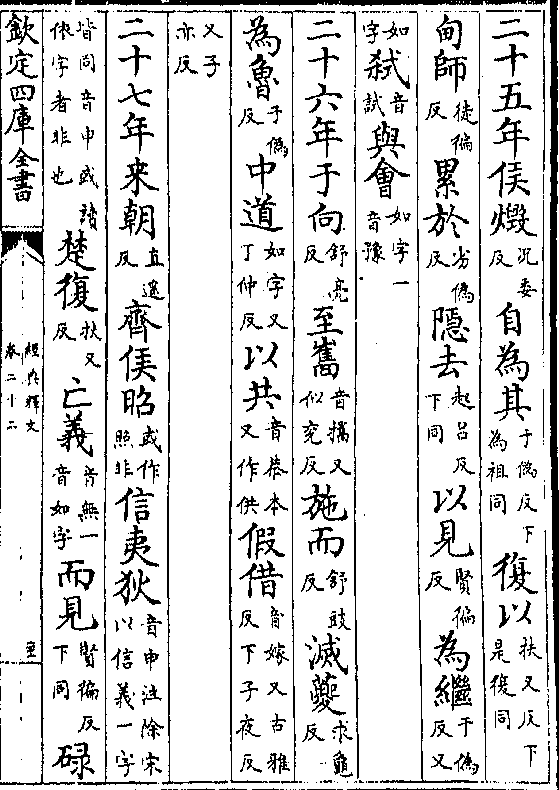 二十五年侯燬況委反自為其于偽反下為祖同復以扶又反下是復同
甸師徒徧反累於劣偽反隱去起呂反下同以見賢徧反為繼于偽反又
如字弑音試與會如字一音豫
二十六年于向舒亮反至巂音攜又似兖反施而舒豉反滅夔求龜反
為魯于偽反中道如字又丁仲反以共音恭本又作供假借音嫁又古雅反下子夜反
又子亦反
二十七年来朝直遥反齊侯昭或作照非信夷狄音申注除宋以信義一字
皆同音申或讀依字者非也楚復扶又反亡義音無一音如字而見賢徧反下同碌
欽定四庫全書
經典釋文
卷二十二